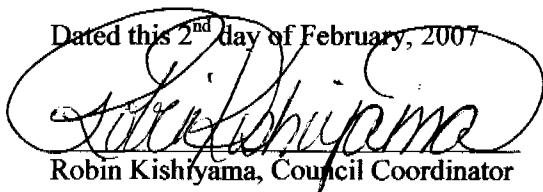 Dated this 2nd day of February, 2007
Robin Kishiyama
Robin Kishiyama, Council Coordinator